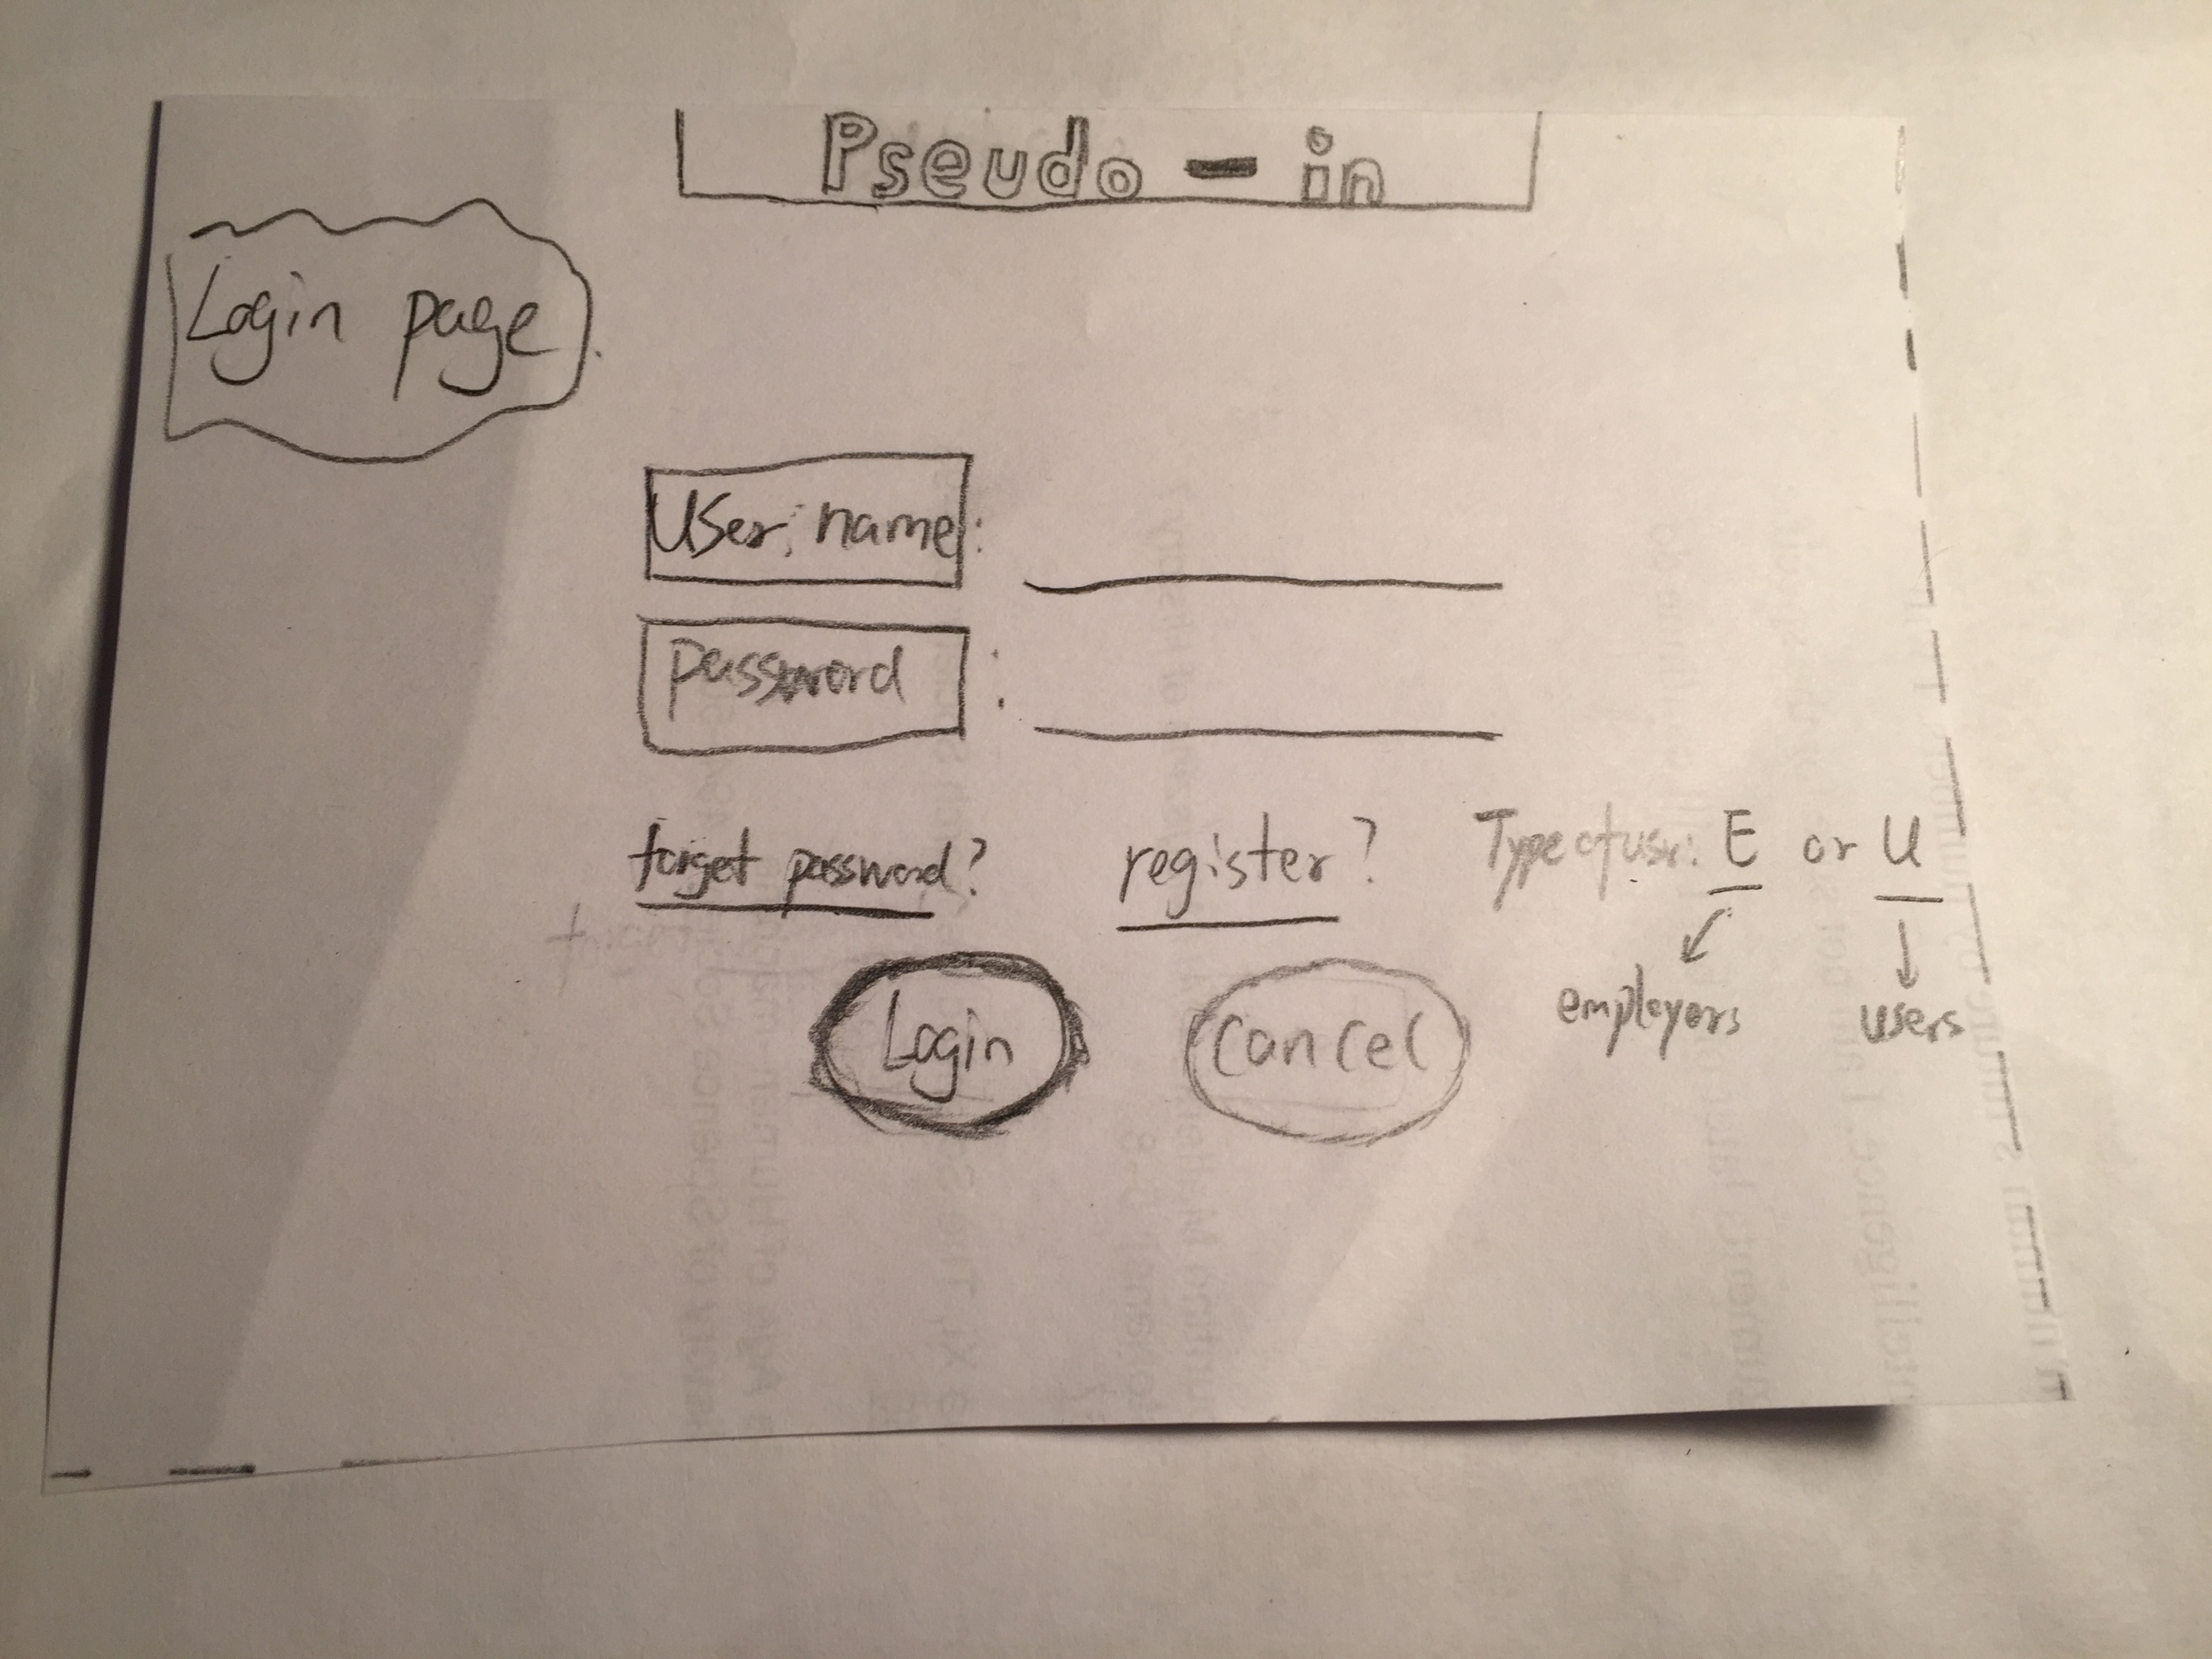 Pseudo - in
Login page
User name:
password :
forget password? register? Type of user: E or U
employors users
Login Cancel